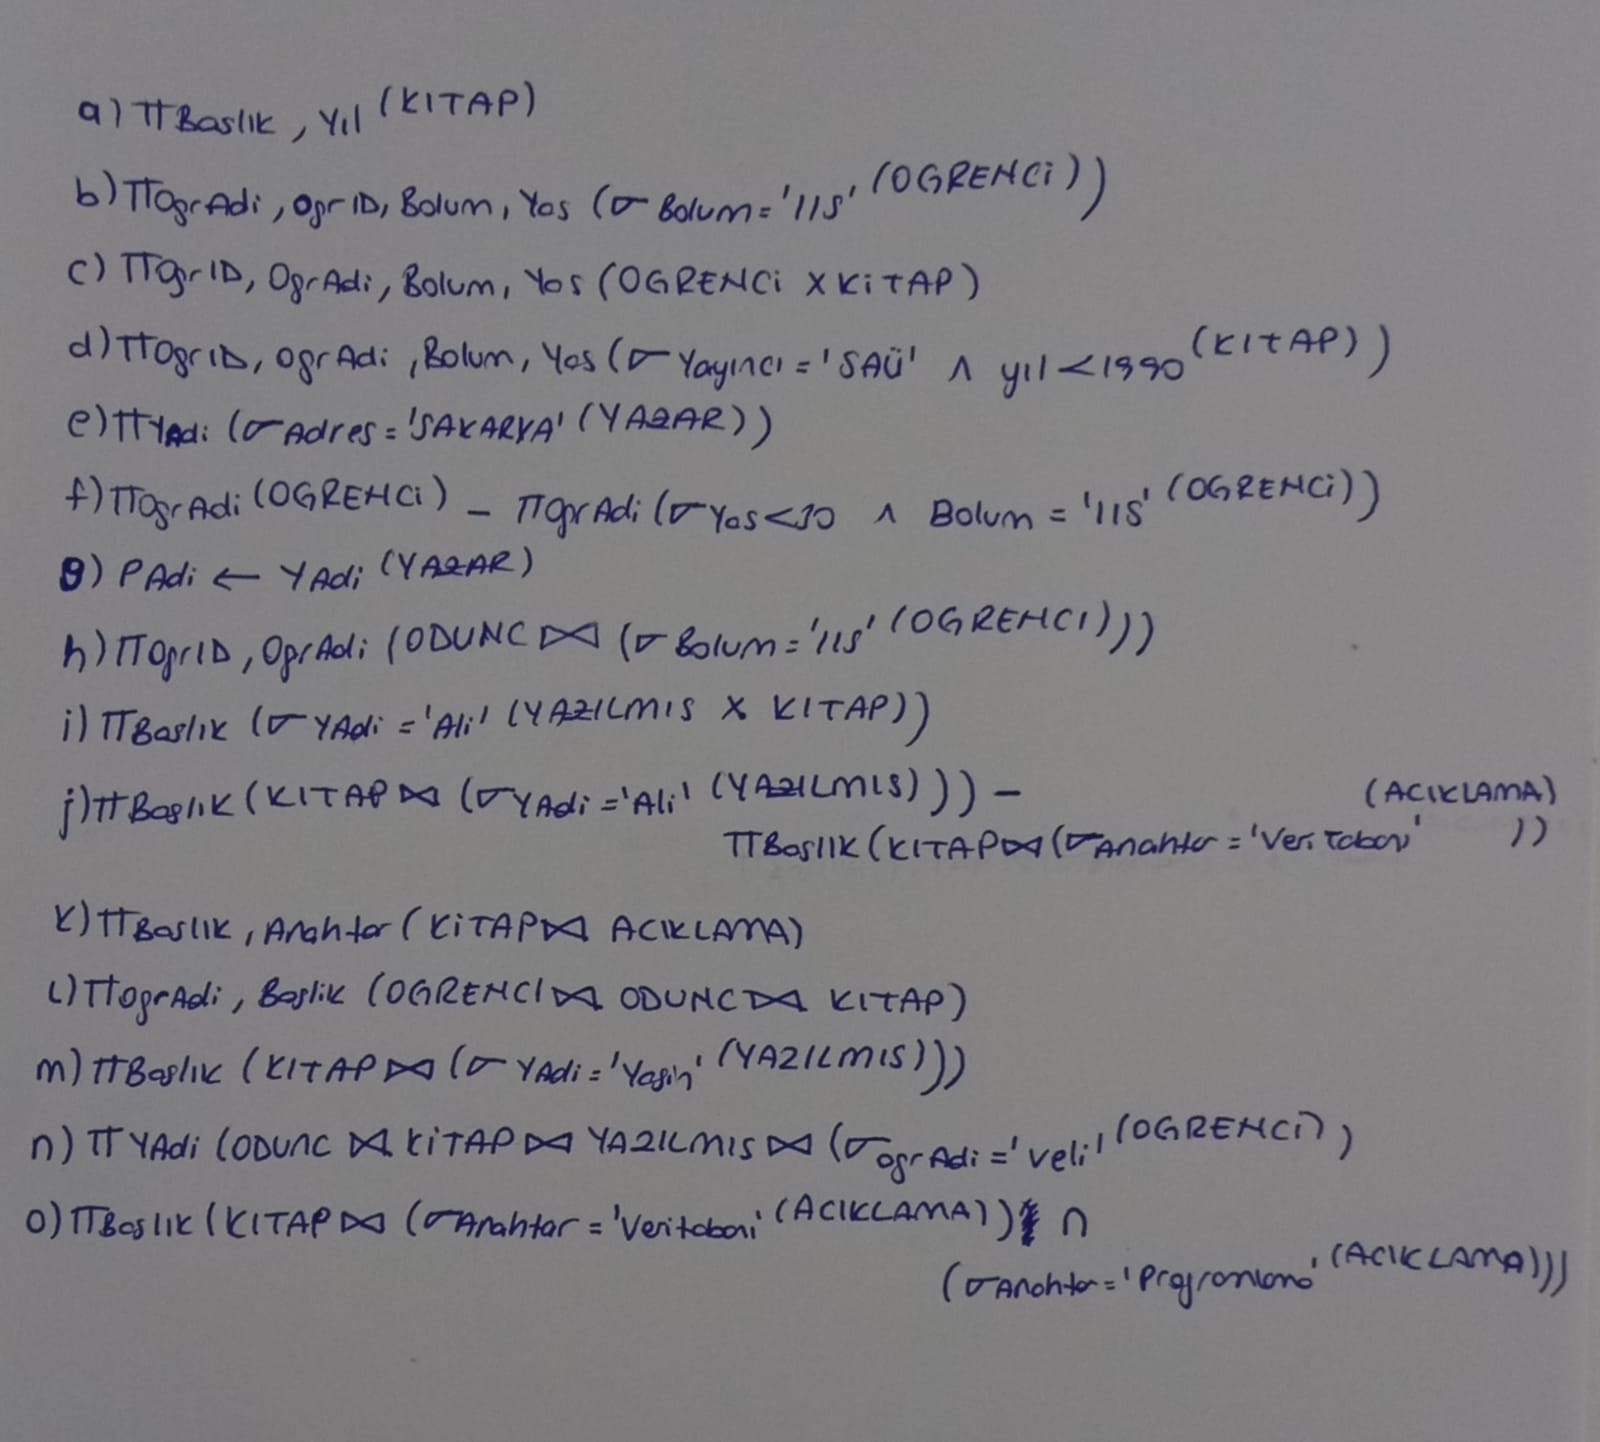 a) π Baslık, Yıl (KITAP)
b) π OgrAdi, OgrID, Bolum, Yas (σ Bolum='IIS' (OGRENCi))
c) π OgrID, OgrAdi, Bolum, Yas (OGRENCi X KiTAP)
d) π OgrID, OgrAdi, Bolum, Yas (σ Yayıncı = 'SAÜ' ∧ yıl < 1990 (KITAP))
e) π YAdi (σ Adres = 'SAKARYA' (YAZAR))
f) π OgrAdi (OGRENCi) - π OgrAdi (σ Yas<30 ∧ Bolum = 'IIS' (OGRENCi))
g) PAdi ← YAdi (YAZAR)
h) π OgrID, OgrAdi (ODUNC ⋈ (σ Bolum='IIS' (OGRENCI)))
i) π Baslık (σ YAdi = 'Ali' (YAZILMIS X KITAP))
j) π Baslık (KITAP ⋈ (σ YAdi = 'Ali' (YAZILMIS))) -
π Baslık (KITAP ⋈ (σ Anahtar = 'Veri Tabanı' (ACIKLAMA)))
k) π Baslık, Anahtar (KiTAP ⋈ ACIKLAMA)
l) π OgrAdi, Baslik (OGRENCI ⋈ ODUNC ⋈ KITAP)
m) π Baslık (KITAP ⋈ (σ YAdi = 'Yasin' (YAZILMIS)))
n) π YAdi (ODUNC ⋈ KiTAP ⋈ YAZILMIS ⋈ (σ OgrAdi = 'veli' (OGRENCi))
o) π Baslık (KITAP ⋈ (σ Anahtar = 'Veritabanı' (ACIKLAMA)) ∩
(σ Anahtar = 'Programlama' (ACIKLAMA)))